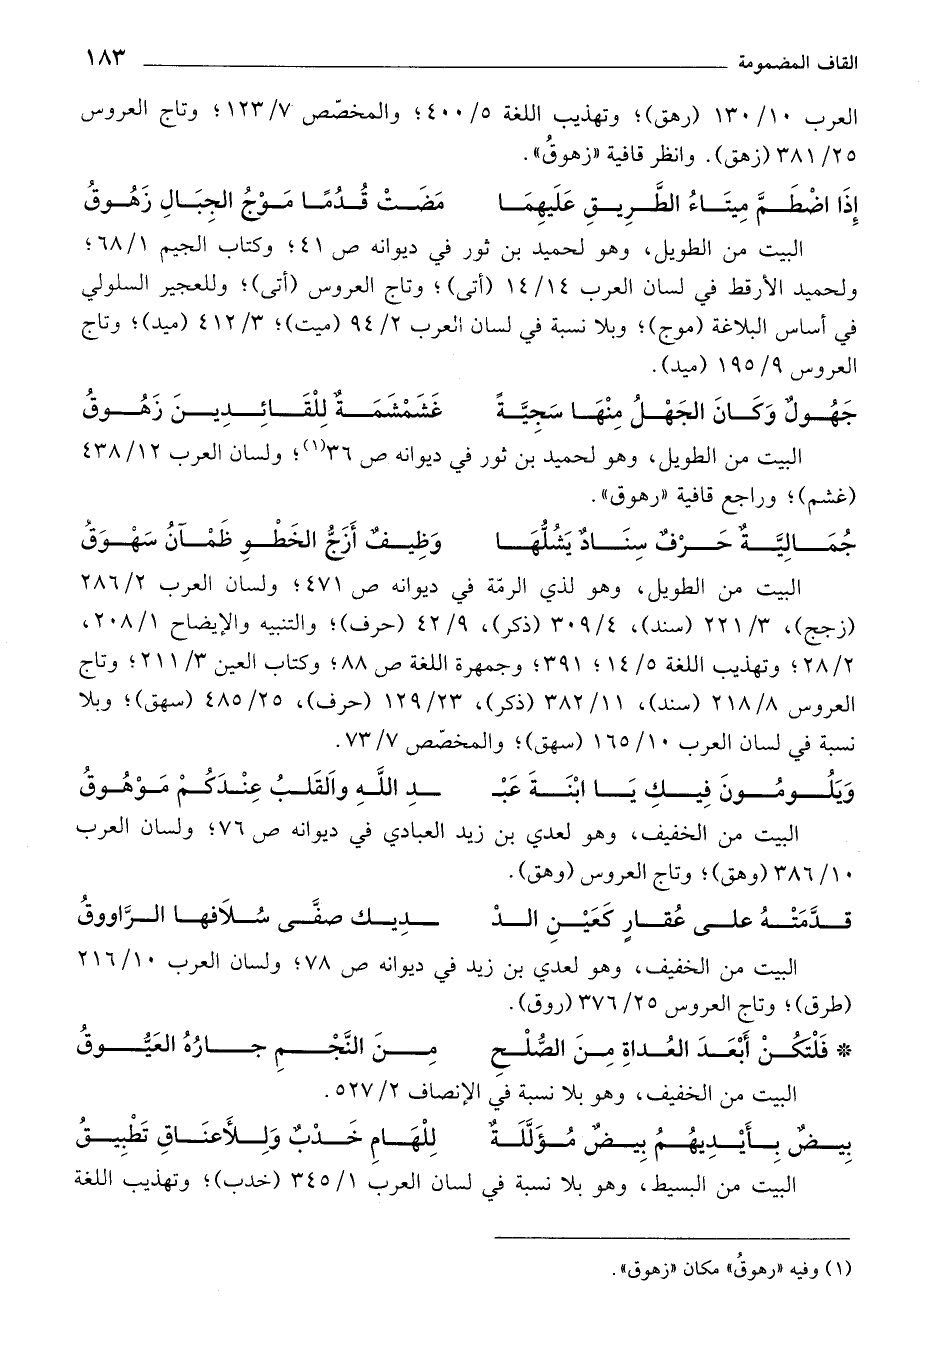 القاف المضمومة ١٨٣
العرب ١٣٠/١٠ (رهق)؛ وتهذيب اللغة ٤٠٠/٥؛ والمخصّص ١٢٣/٧؛ وتاج العروس
٣٨١/٢٥ (زهق). وانظر قافية «زهوقُ».
إِذَا اضْطَمَّ مِيتَاءُ الطَّرِيقِ عَلَيهِمَا مَضَتْ قُدُمًا مَوْجُ الجِبَالِ زَهُوقُ
البيت من الطويل، وهو لحميد بن ثور في ديوانه ص ٤١؛ وكتاب الجيم ٦٨/١؛
ولحميد الأرقط في لسان العرب ١٤/١٤ (أتى)؛ وتاج العروس (أتى)؛ وللعجير السلولي
في أساس البلاغة (موج)؛ وبلا نسبة في لسان العرب ٩٤/٢ (ميت)؛ ٤١٢/٣ (ميد)؛ وتاج
العروس ١٩٥/٩ (ميد).
جَهُولٌ وَكَانَ الجَهْلُ مِنْهَا سَجِيَّةً غَشَمْشَمَةٌ لِلْقَائِدِينَ زَهُوقُ
البيت من الطويل، وهو لحميد بن ثور في ديوانه ص ٣٦(١)؛ ولسان العرب ٤٣٨/١٢
(غشم)؛ وراجع قافية «رهوق».
جُمَالِيَّةٌ حَرْفٌ سِنَادٌ يَشُلُّهَا وَظِيفٌ أَزَجُّ الخَطْوِ ظَمْآنُ سَهْوَقُ
البيت من الطويل، وهو لذي الرمّة في ديوانه ص ٤٧١؛ ولسان العرب ٢٨٦/٢
(زجج)، ٢٢١/٣ (سند)، ٣٠٩/٤ (ذكر)، ٤٢/٩ (حرف)؛ والتنبيه والإيضاح ٢٠٨/١،
٢٨/٢؛ وتهذيب اللغة ١٤/٥؛ ٣٩١؛ وجمهرة اللغة ص ٨٨؛ وكتاب العين ٢١١/٣؛ وتاج
العروس ٢١٨/٨ (سند)، ٣٨٢/١١ (ذكر)، ١٢٩/٢٣ (حرف)، ٤٨٥/٢٥ (سهق)؛ وبلا
نسبة في لسان العرب ١٦٥/١٠ (سهق)؛ والمخصّص ٧٣/٧.
وَيَلُومُونَ فِيكِ يَا ابْنَةَ عَبْـ ـدِ اللَّهِ وَالقَلبُ عِنْدَكُمْ مَوْهُوقُ
البيت من الخفيف، وهو لعدي بن زيد العبادي في ديوانه ص ٧٦؛ ولسان العرب
٣٨٦/١٠ (وهق)؛ وتاج العروس (وهق).
قدَّمَتْهُ على عُقارٍ كَعَيْنِ الدْ ديك صفَّى سُلافها الرَّاووقُ
البيت من الخفيف، وهو لعدي بن زيد في ديوانه ص ٧٨؛ ولسان العرب ٢١٦/١٠
(طرق)؛ وتاج العروس ٣٧٦/٢٥ (روق).
* فَلْتَكُنْ أَبْعَدَ العُداةِ مِنَ الصُّلْحِ مِنَ النَّجْمِ جارُهُ العَيُّوقُ
البيت من الخفيف، وهو بلا نسبة في الإنصاف ٥٢٧/٢.
بِيضٌ بِأَيْدِيهُمُ بِيضٌ مُؤَلَّلَةٌ لِلْهَامِ خَدْبٌ وَلِلأَعنَاقِ تَطْبِيقُ
البيت من البسيط، وهو بلا نسبة في لسان العرب ٣٤٥/١ (خدب)؛ وتهذيب اللغة
(١) وفيه «رهوقُ» مكان «زهوق».